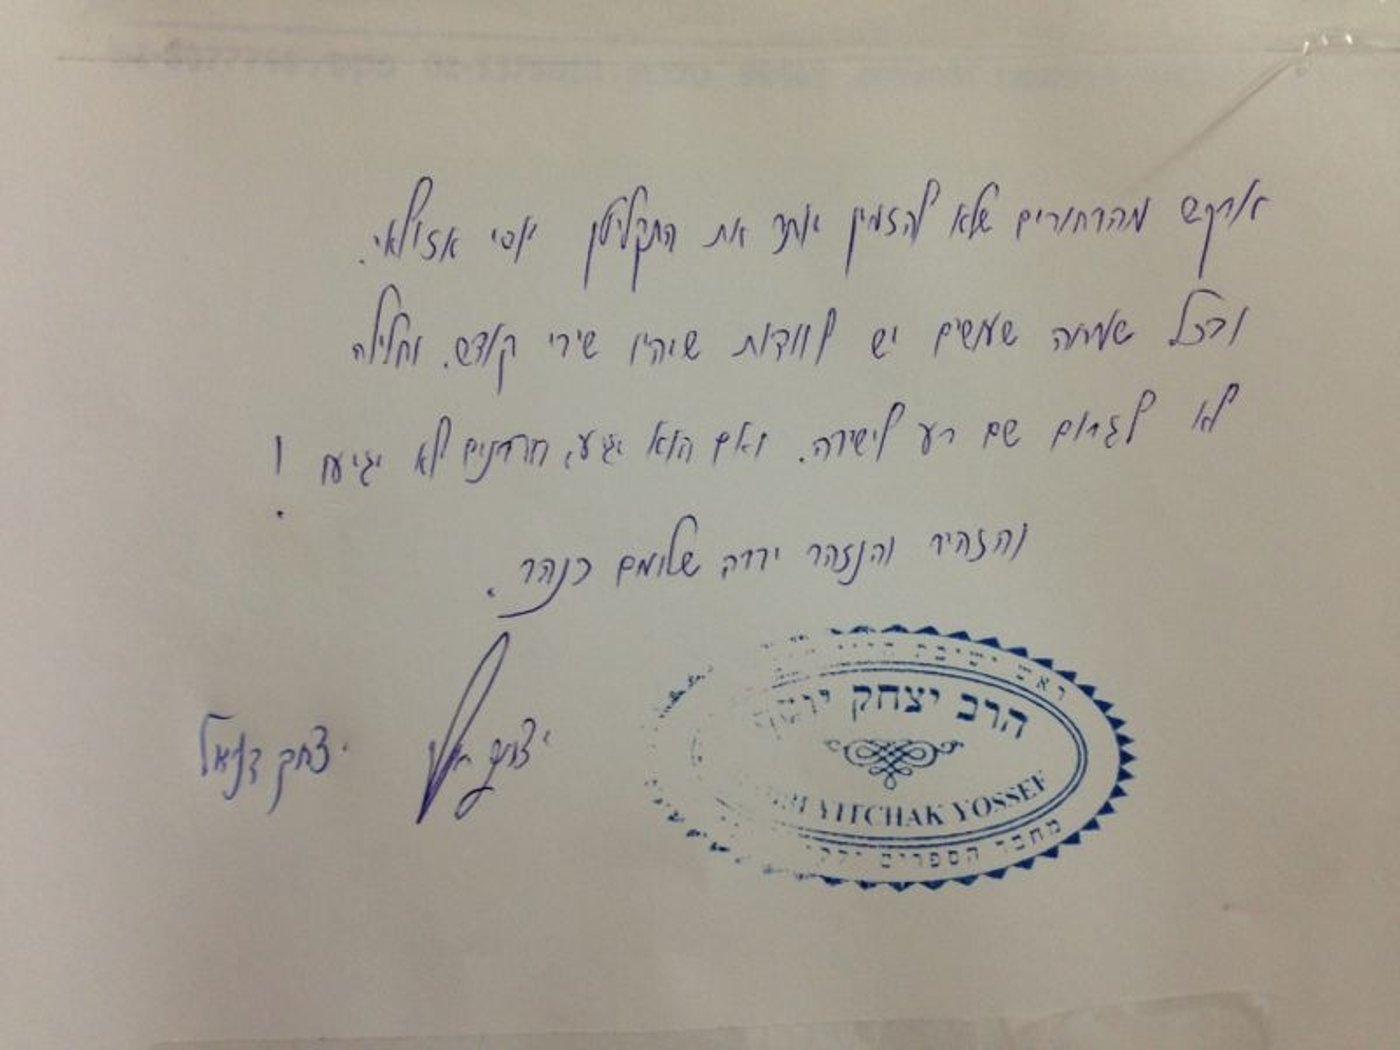 אבקש מהבחורים שלא להזמין יותר את התקליטן יוסי אזולאי.
ובכל שמחה שעושים יש לוודות שיהיו שירי קודש. וחלילה
לא לגרום שם רע לישיבה. ואם הוא יגיע, הרבנים לא יגיעו !
והזהיר והנזהר ירבה שלומם כנהר.
יצחק יוסף יצחק דניאל
ראש ישיבת חזון
הרב יצחק יוסף
YITCHAK YOSSEF
מחבר הספרים ילקו